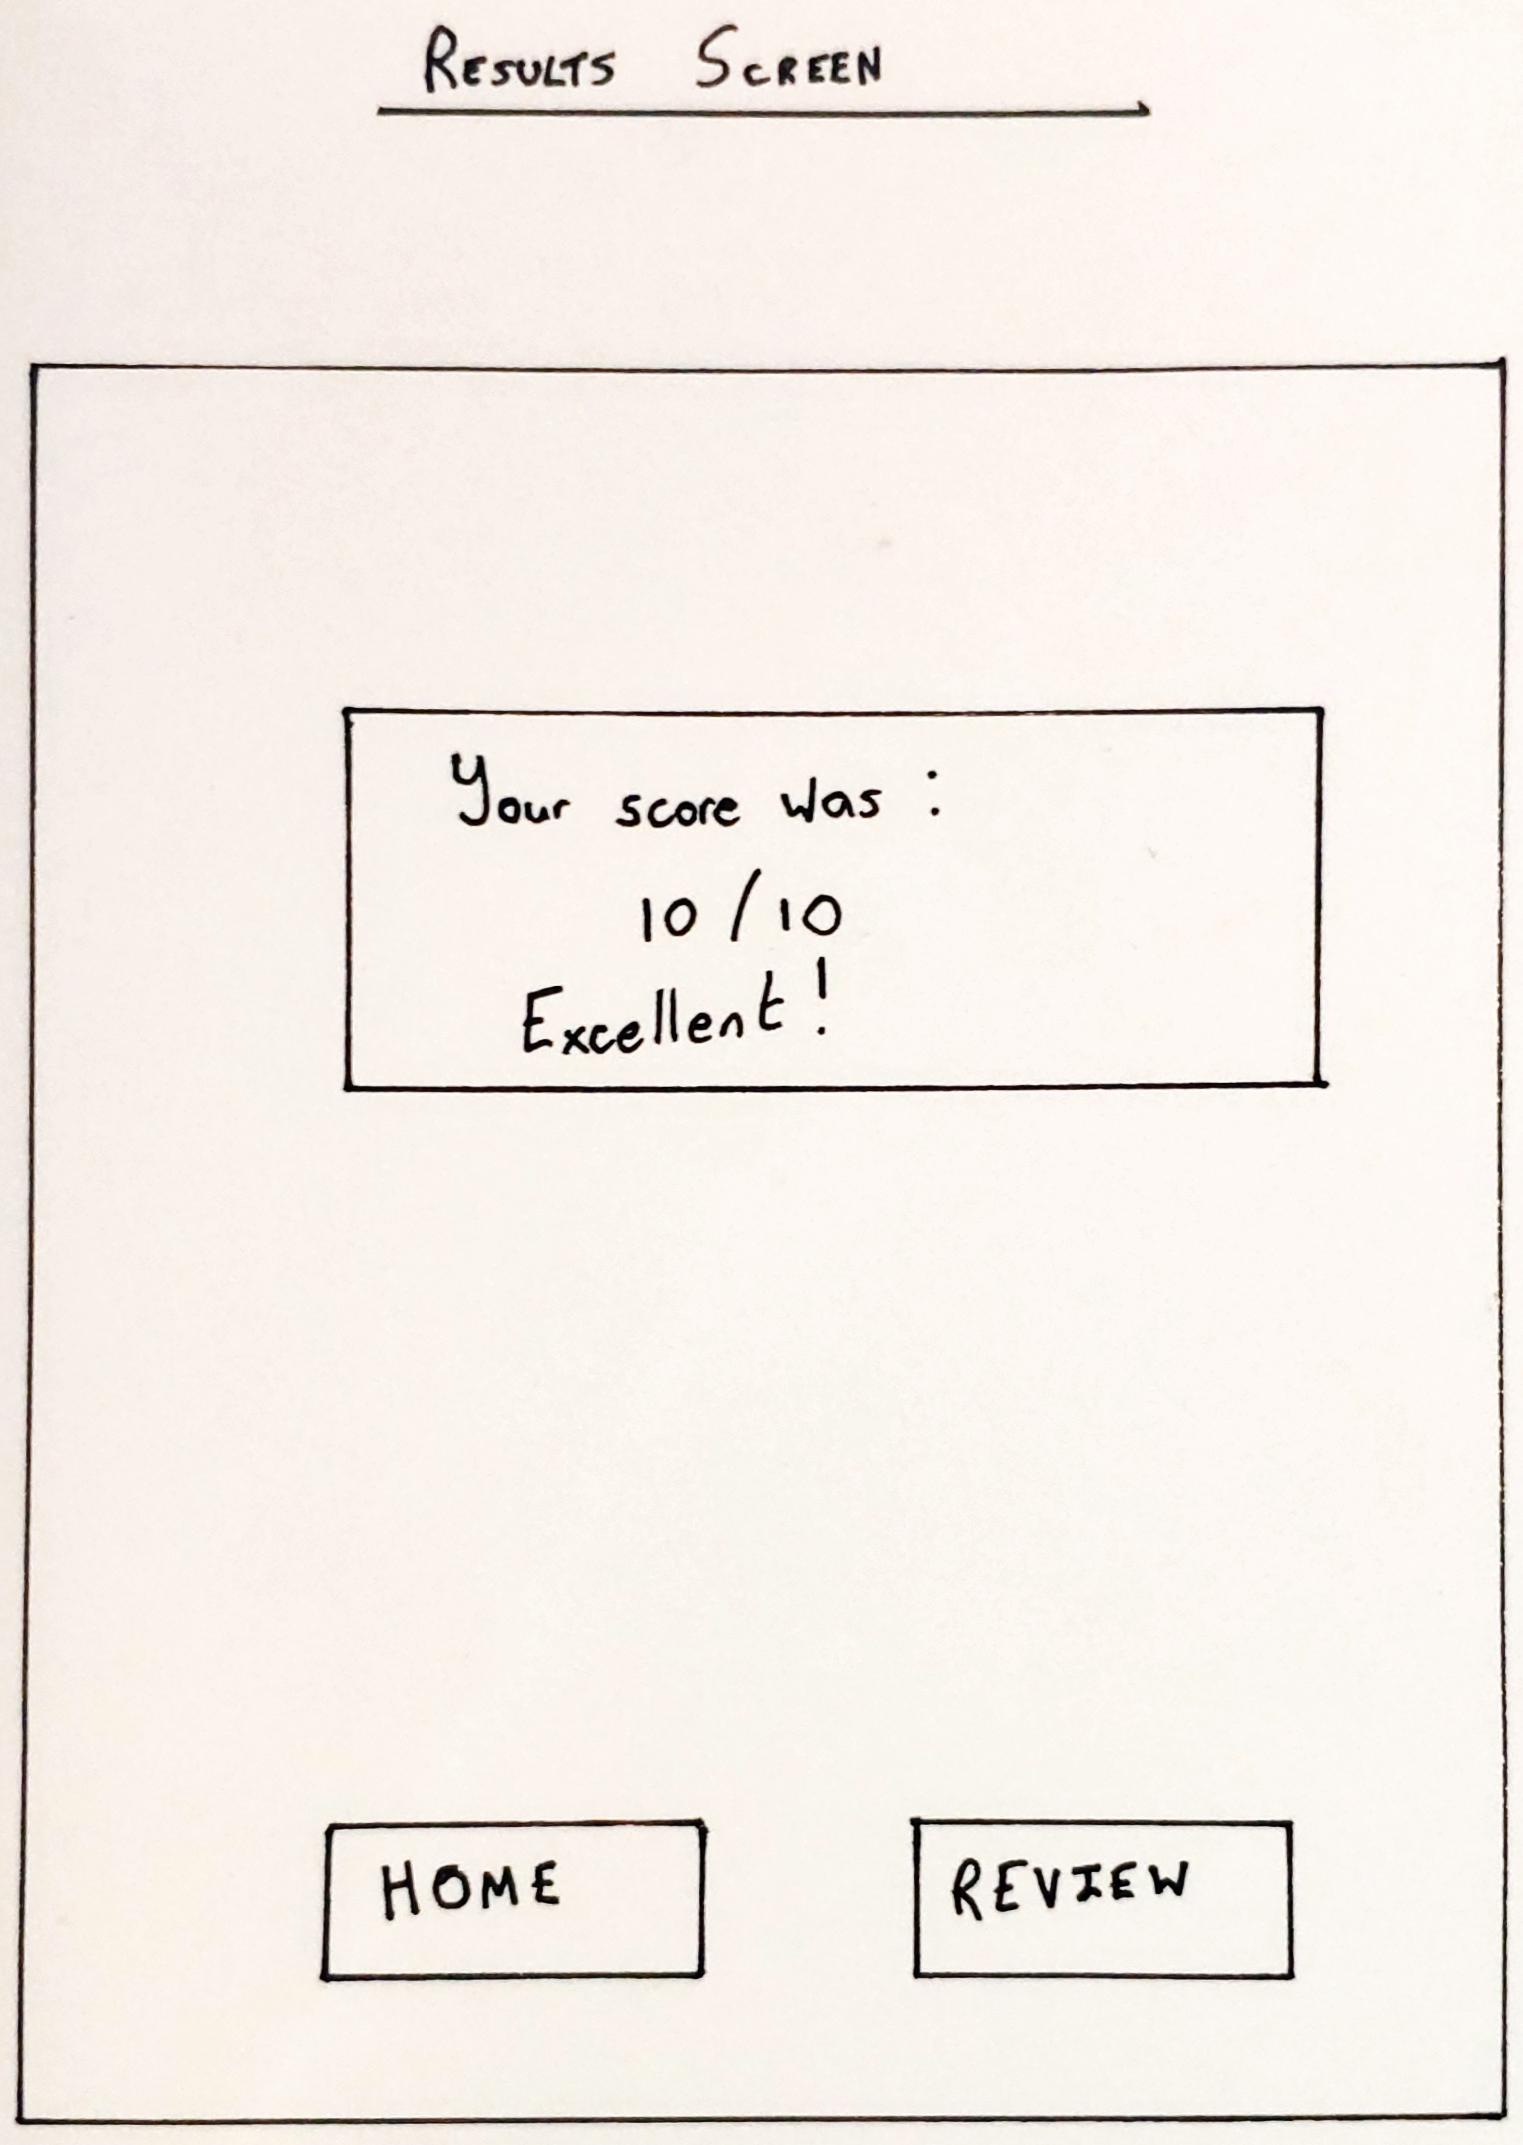 RESULTS SCREEN
Your score was :
10 / 10
Excellent !
HOME
REVIEW